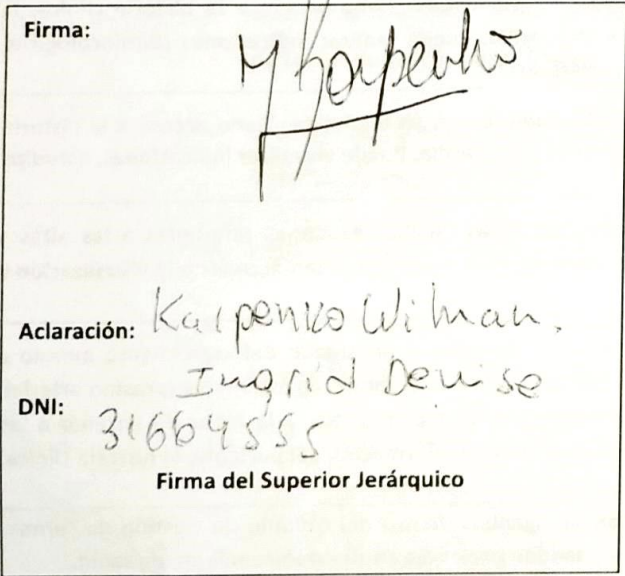 Firma:
Karpenko
Aclaración: Karpenko Wilman.
Ingrid Denise
DNI: 31664555
Firma del Superior Jerárquico